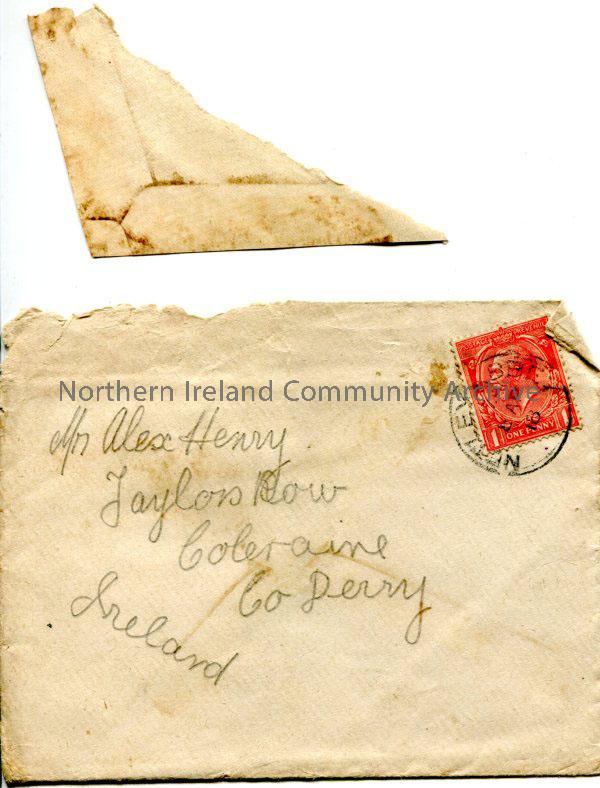 POSTAGE REVENUE
ONE PENNY
Northern Ireland Community Archive
Mr Alex Henry
Taylors Row
Coleraine
Co Derry
Ireland